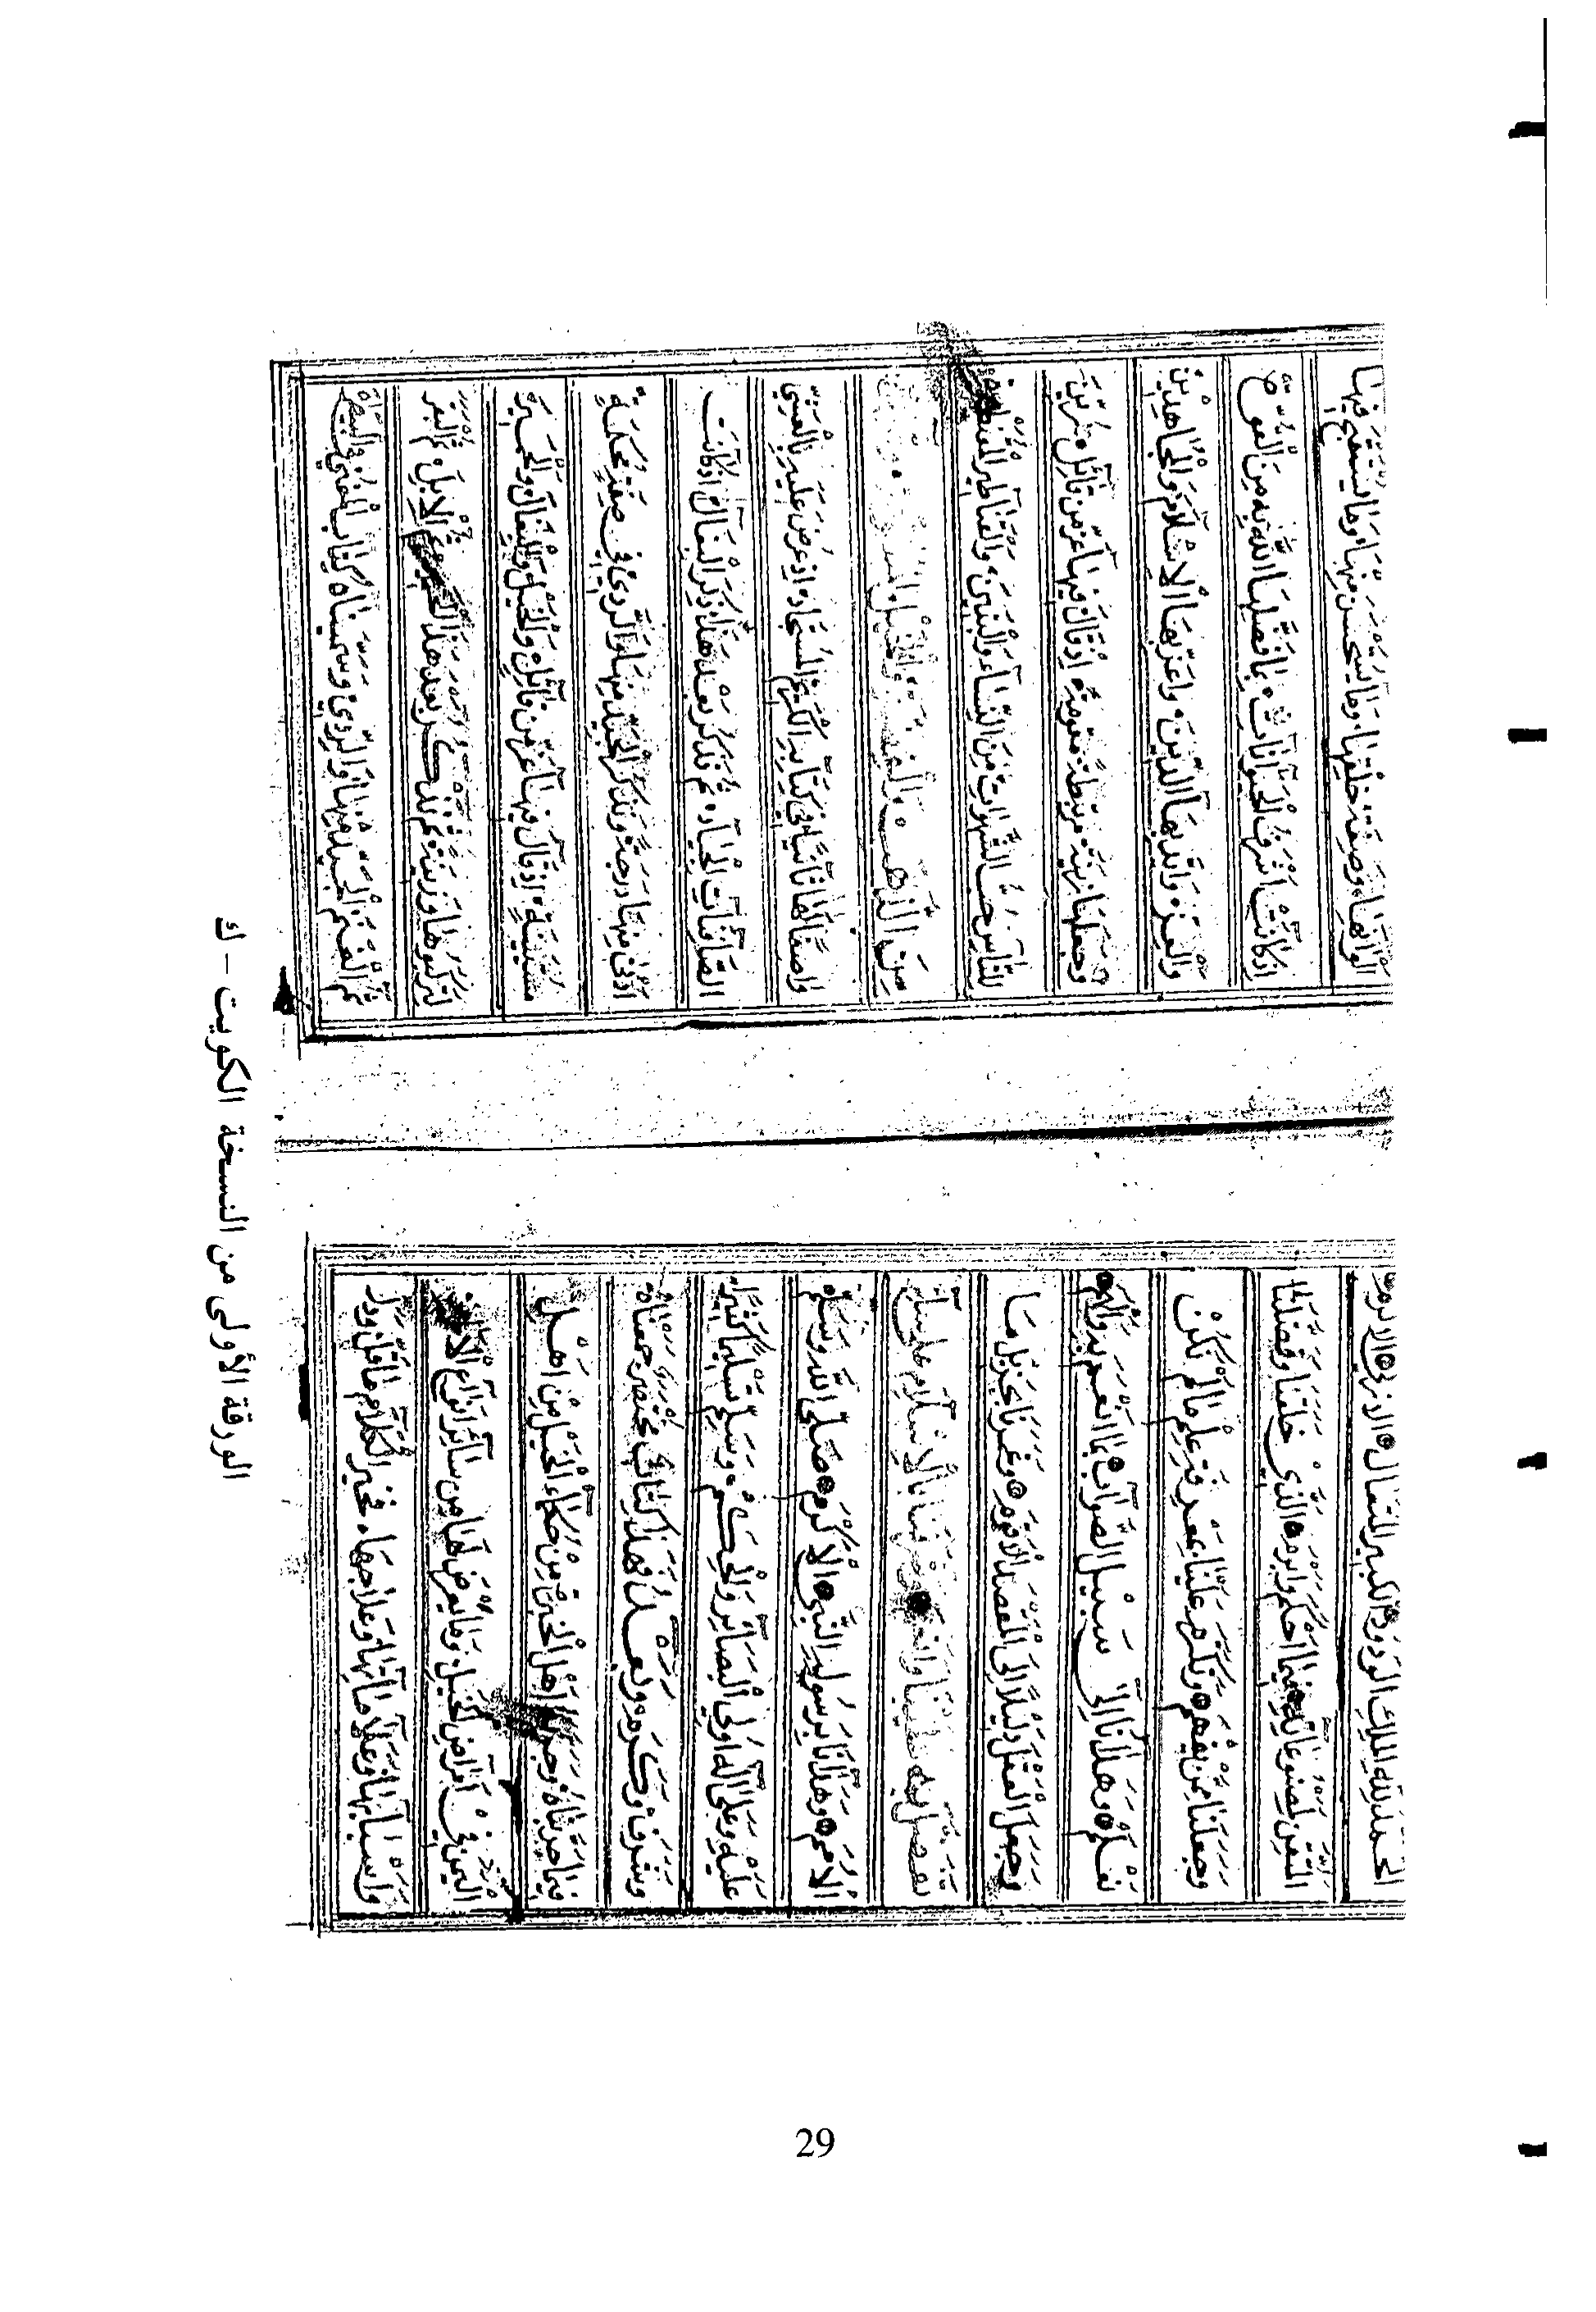 الحمد لله الملك الودود الكبير المتعال الازلي الابدي
المتقن لمصنوعاته فيما احكم وابرم الذي خلقنا وفضلنا
وجعلنا ممن يفهم وتكرم علينا بمعرفة علم ما لم نكن
نعلم وهدانا الى سبيل الصواب بما انعم به والهم
وجعل العقل دليلا الى القصد الاقوم وغمرنا بجزيل ما
تفضل به علينا بالاسلام
الامم وهدانا برسوله النبي الاكرم صلى الله وسلم
عليه وعلى اله اولي البصائر والحكم وسلم تسليما كثيرا
وشرف وكرم وبعد فهذا كتاب مختصر جمعناه
فيما جربناه وجربه اهل الخبرة من حكماء الخيل من اهل
اليمن في امراض الخيل وما يعرض لها من سائر انواع الالام
واسبابها وعلاماتها وعلاجها فخير الكلام ما قل ودل
الوانها وصفة خلقها وما يستحسن منها وما يستقبح فيها
اذ كانت اشرف الحيوانات بما فضلها الله به من القوة
والعز وايد بها الدين واعز بها الاسلام والمجاهدين
وجعلها زينة اذ قال فيها عز من قائل زين
للناس حب الشهوات من النساء والبنين والقناطير المقنطرة
من الذهب والفضة والخيل المسومة
واصفا لها ثانيا في كتابه الكريم اذ عرض عليه بالعشي
الصافنات الجياد ثم نذكر بعد هذا ذكر البغال اذ كانت
ادنى منها درجة ونذكر الجيد منها والردي في صفة محكمة
اذ قال فيها عز من قائل والخيل والبغال والحمير
لتركبوها وزينة ثم نذكر بعد هذا الحمير ثم الابل ثم البقر
ثم الغنم الجيد منها والردي وسميناه كتاب المغني في البيطرة
الورقة الأولى من النسخة الكويت - ك
29